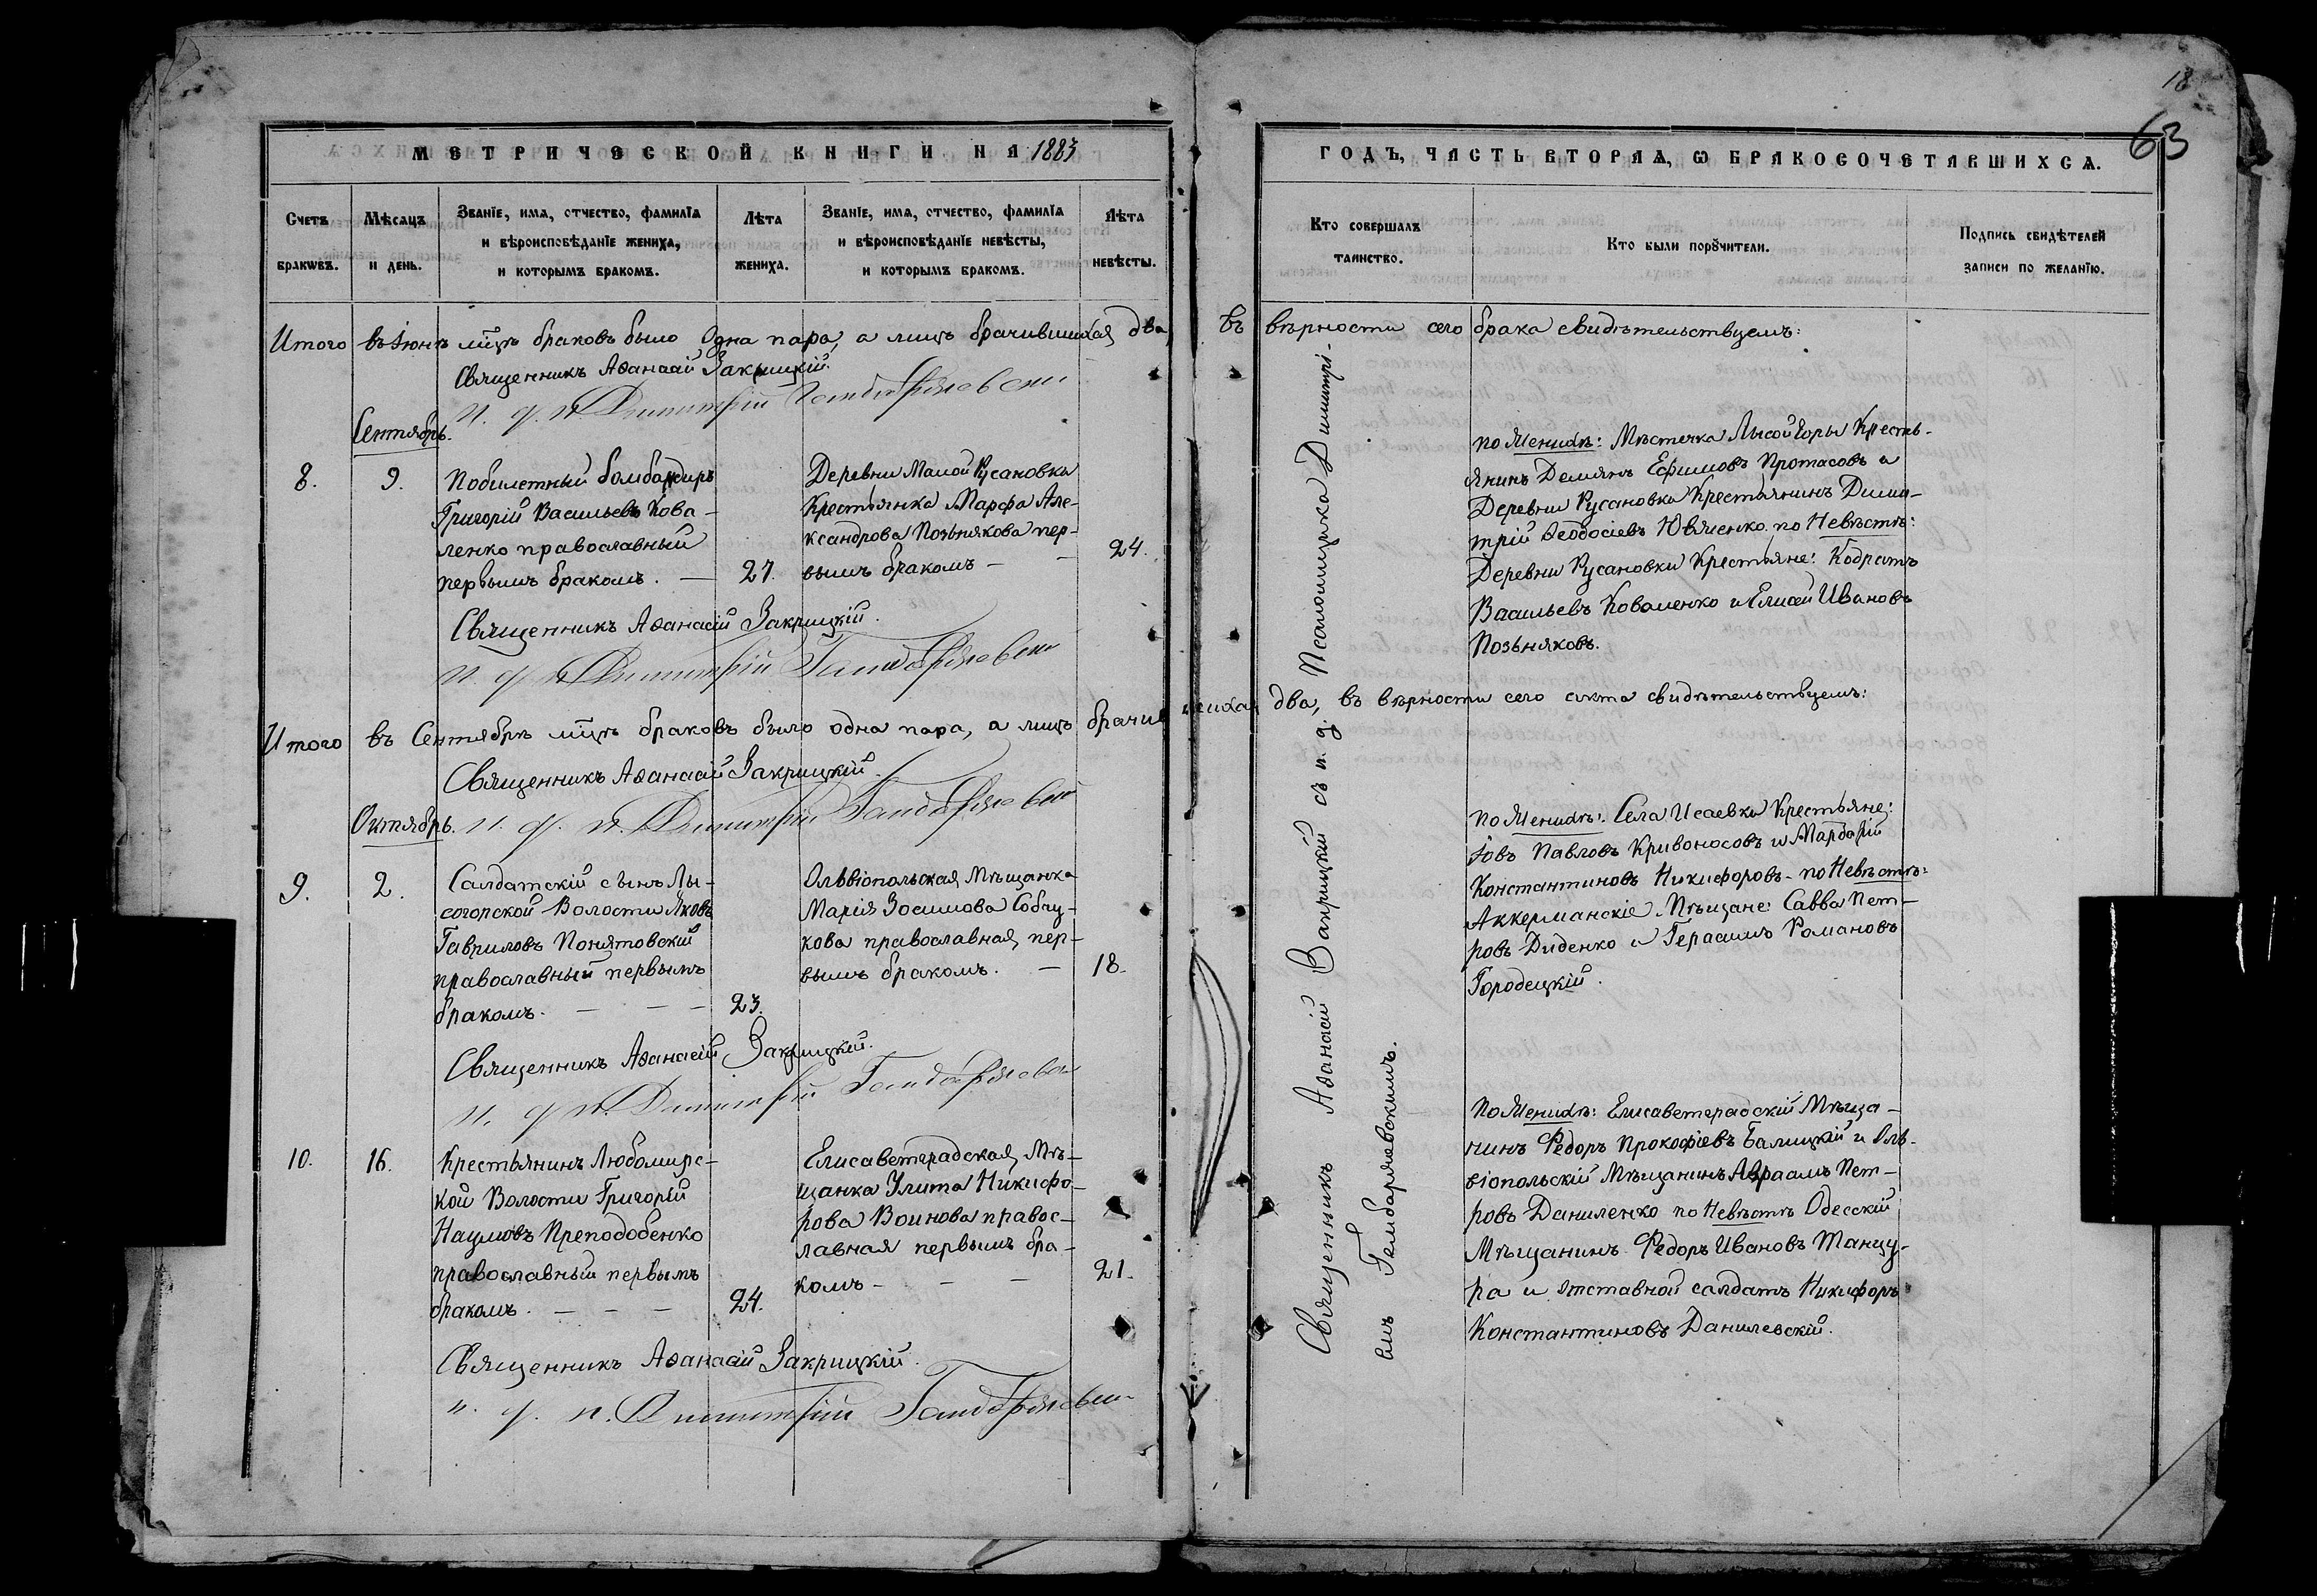 18
63
МЕТРИЧЕСКОЙ КНИГИ НА 1883
ГОДЪ, ЧАСТЬ ВТОРАѦ, Ѡ БРАКОСОЧЕТАВШИХСѦ.
Счетъ
браковъ.
Мѣсѧцъ
и день.
Званїе, имѧ, отчество, фамилїѧ
и вѣроисповѣданїе жениха,
и которымъ бракомъ.
Лѣта
жениха.
Званїе, имѧ, отчество, фамилїѧ
и вѣроисповѣданїе невѣсты,
и которымъ бракомъ.
Лѣта
невѣсты.
Кто совершалъ
таинство.
Кто были порꙋчители.
Подпись свидѣтелей
записи по желанїю.
Итого въ Іюнѣ мѣцѣ браковъ было Одна пара, а лицъ брачившихся два, въ вѣрности сего брака свидѣтельствуемъ:
Священникъ Аѳанасій Закрицкій.
И. д. п. Димитрій
Сентябрь.
8.
9.
Побилетный бомбандиръ
Григорій Васильевъ Кова-
ленко православный
первымъ бракомъ. —
27.
Деревни Малой Русановки
Крестьянка Марфа Але-
ксандрова Позьнякова пер-
вымъ бракомъ —
24.
по Женихѣ: Мѣстечка Лысой Горы Кресть-
янинъ Демянъ Ефимовъ Протасовъ и
Деревни Русановки Крестьянинъ Дими-
трій Ѳеодосіевъ Ювженко. по Невѣстѣ:
Деревни Русановки Крестьяне: Кодратъ
Васильевъ Коваленко и Елисей Ивановъ
Позьняковъ.
Священникъ Аѳанасій Закрицкій.
И. д. п. Димитрій
Итого въ Сентябрѣ мѣцѣ браковъ было одна пара, а лицъ брачившихся два, въ вѣрности сего акта свидѣтельствуемъ:
Священникъ Аѳанасій Закрицкій.
И. д. п. Димитрій
Октябрь.
9.
2.
Салдатскій сынъ Лы-
согорской Волости Яковъ
Гавриловъ Понятовскій
православный первымъ
бракомъ. — — —
23.
Ольвіопольская Мѣщанка
Марія Зосимова Собчу-
кова православная, пер-
вымъ бракомъ. —
18.
по Женихѣ: Села Исаевки Крестьяне:
Іовъ Павловъ Кривоносовъ и Мардарій
Константиновъ Никифоровъ - по Невѣстѣ:
Аккерманскіе Мѣщане: Савва Пет-
ровъ Диденко и Герасимъ Романовъ
Городецкій.
Священникъ Аѳанасій Закрицкій.
И. д. п. Димитрій
10.
16.
Крестьянинъ Любомирс-
кой Волости Григорій
Наумовъ Преподобенко
православный первымъ
бракомъ. — — —
24.
Елисаветградская, Мѣ-
щанка Улита Никифо-
рова Воинова правос-
лавная первымъ бра-
комъ — — —
21.
по Женихѣ: Елисаветградскій Мѣща-
нинъ Федоръ Прокофіевъ Балицкій и Оль-
віопольскій Мѣщанинъ Авраамъ Пет-
ровъ Даниленко по Невѣстѣ Одесскій
Мѣщанинъ Федоръ Ивановъ Танцу-
ра и отставной салдатъ Никифоръ
Константиновъ Данилевскій.
Священникъ Аѳанасій Закрицкій.
и. д. п. Димитрій
Священникъ Аѳанасій Закрицкій съ и. д. Псаломщика Димитрі-
емъ Гамбаржевскимъ.